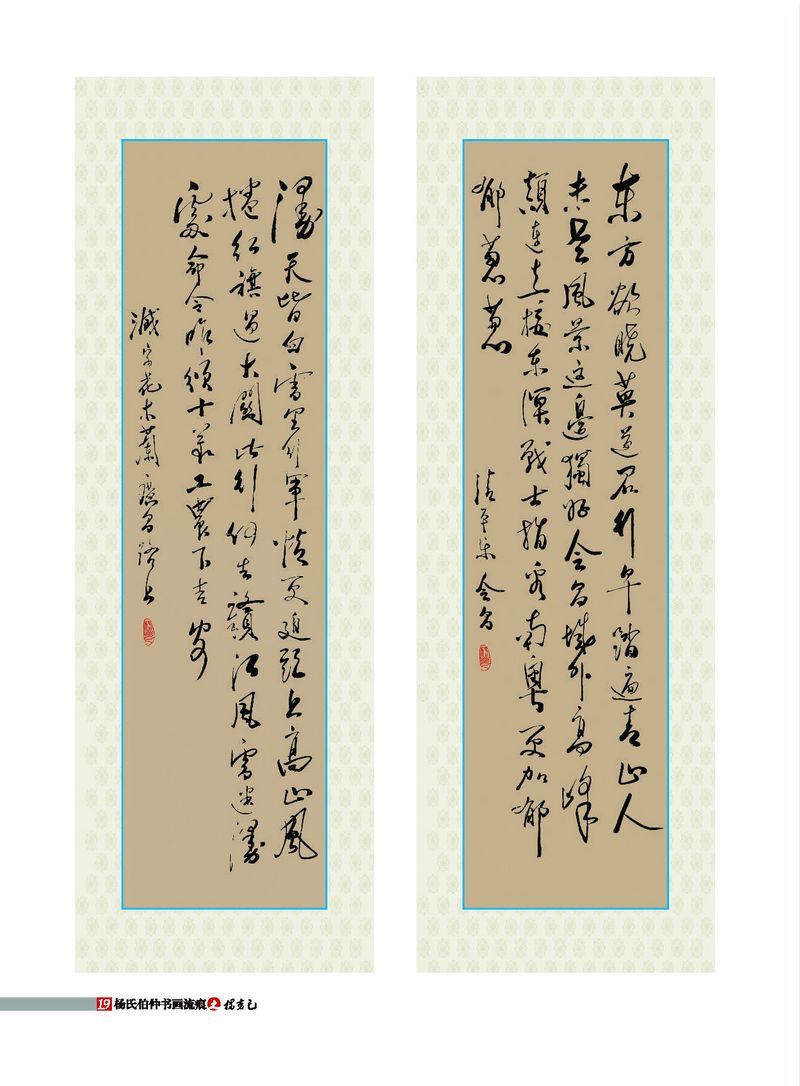 东方欲晓莫道君行早踏遍青山人
未老風景这邊獨好会昌城外高峰
顛連直接东溟戰士指看南粤更加郁
郁葱葱
清平乐会昌
漫天皆白雪里行軍情更迫頭上高山風
捲红旗過大關此行何去贛江風雪迷漫
處命令昨頒十萬工農下吉安
減字花木蘭廣昌路上
19 杨氏伯仲书画流痕